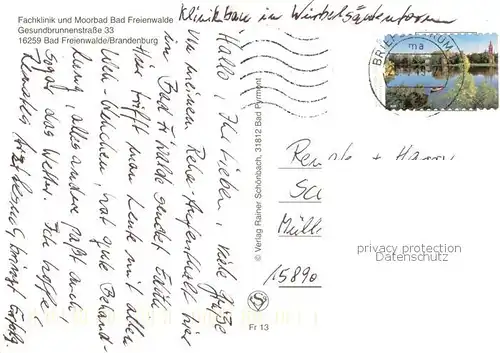 Fachklinik und Moorbad Bad Freienwalde
Gesundbrunnenstraße 33
16259 Bad Freienwalde/Brandenburg
Klinikbau in Wirbelsäulenform
Hallo, Ihr Lieben, viele Grüße
von meinem Reha-Aufenthalt hier
in Bad Fr'walde sendet Edith.
Hier trifft man Leute mit allen
Weh-Wehchen, hat gute Behand-
lung, alles andere paßt auch,
sogar das Wetter. Ich hoffe,
Renates bringt Erfolg.
© Verlag Rainer Schönbach, 31812 Bad Pyrmont
BRIEFZENTRUM
Renate + Harry
Müll
15890
privacy protection
Datenschutz
Fr 13